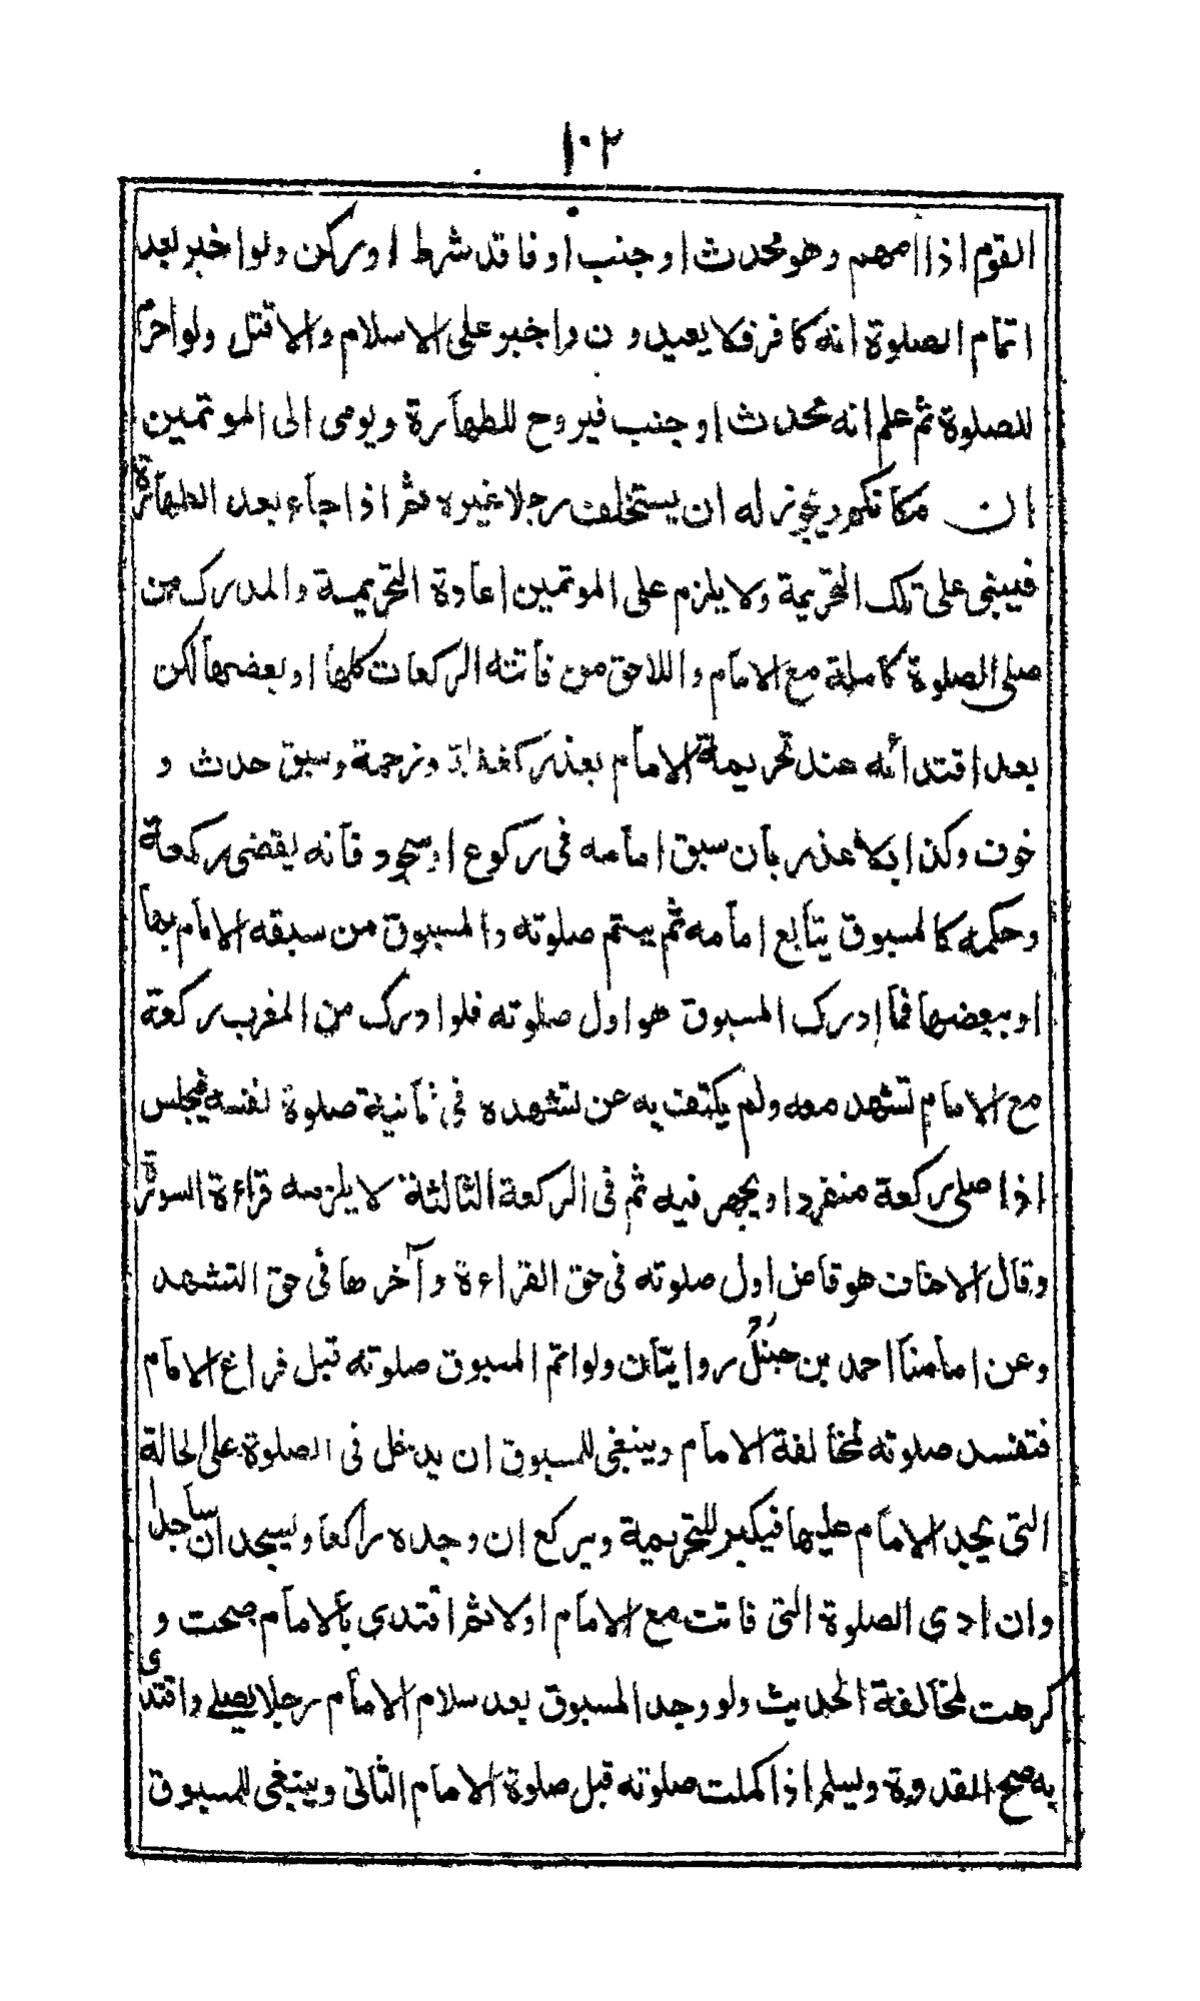 ١٠٢
القوم اذا أمهم وهو محدث او جنب او فاقد شرط او ركن ولو اخبر بعد
اتمام الصلوة انه كافر فلا يعيدون واخبر على الاسلام والا قتل ولو احرم
للصلوة ثم علم انه محدث او جنب فيروح للطهارة ويومى الى الموتمين
ان مكانكم ويجوز له ان يستخلف رجلا غيره ثم اذا جاء بعد الطهارة
فيبنى على تلك التحريمة ولا يلزم على الموتمين اعادة التحريمة والمدرك من
صلى الصلوة كاملة مع الامام واللاحق من فاتته الركعات كلها او بعضها لكن
بعد اقتدائه عند تحريمة الامام بعذر كغفلة وزحمة وسبق حدث و
خوف وكذا بلا عذر بان سبق امامه فى ركوع او سجود فانه يقضى ركعة
وحكمه كالمسبوق يتابع امامه ثم يتم صلوته والمسبوق من سبقه الامام بها
او ببعضها فما ادرك المسبوق هو اول صلوته فلو ادرك من المغرب ركعة
مع الامام تشهد معه ولم يكتف به عن تشهده فى ثانية صلوة لنفسه فيجلس
اذا صلى ركعة منفردا ويجهر فيه ثم فى الركعة الثالثة لا يلزمه قراءة السورة
وقال الاحناف هو قاض اول صلوته فى حق القراءة وآخرها فى حق التشهد
وعن امامنا احمد بن حنبل روايتان ولو اتم المسبوق صلوته قبل فراغ الامام
فتفسد صلوته لمخالفة الامام وينبغى للمسبوق ان يدخل فى الصلوة على الحالة
التى يجد الامام عليها فيكبر للتحريمة ويركع ان وجده راكعا ويسجد ان ساجدا
وان ادى الصلوة التى فاتت مع الامام اولا ثم اقتدى بالامام صحت و
كرهت لمخالفة الحديث ولو وجد المسبوق بعد سلام الامام رجلا يصلے واقتدى
به صح القدوة ويسلم اذا كملت صلوته قبل صلوة الامام الثانى وينبغى للمسبوق